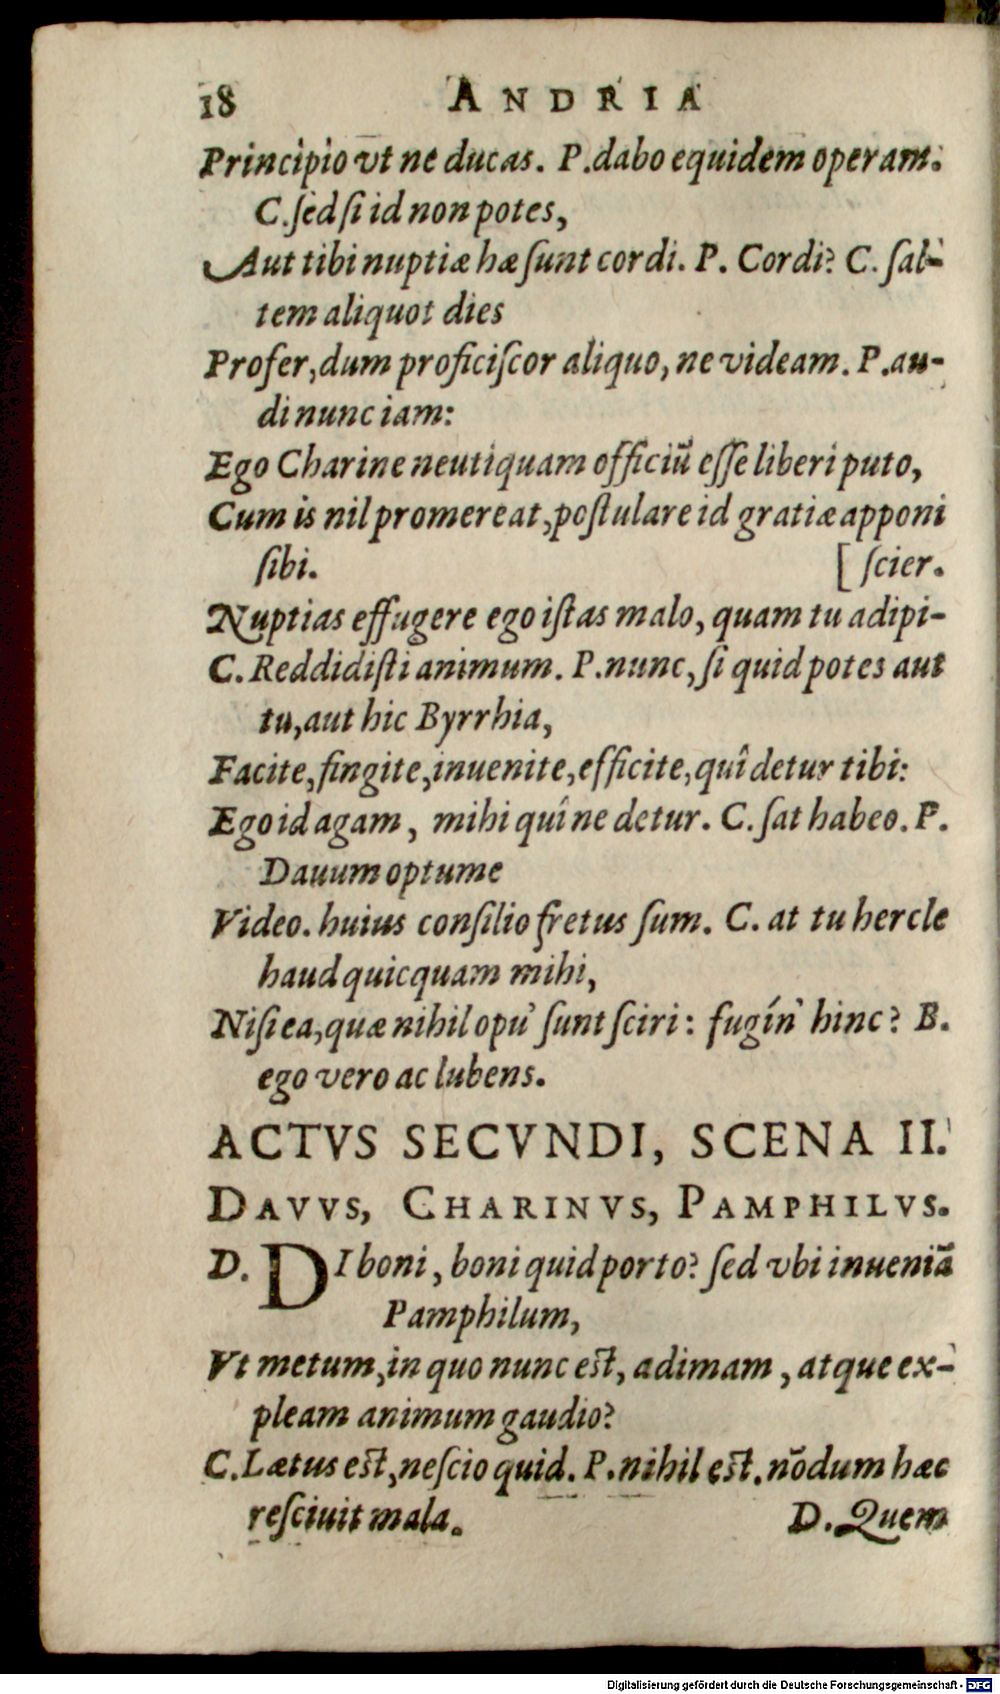 18 ANDRIA
Principio vt ne ducas. P. dabo equidem operam.
C. ſed ſi id non potes,
Aut tibi nuptiæ hæ ſunt cordi. P. Cordi? C. ſal-
tem aliquot dies
Profer, dum proficiſcor aliquo, ne videam. P. au-
di nunc iam:
Ego Charine neutiquam officiũ eſſe liberi puto,
Cum is nil promereat, poſtulare id gratiæ apponi
ſibi. [ſcier.
Nuptias effugere ego iſtas malo, quam tu adipi-
C. Reddidiſti animum. P. nunc, ſi quid potes aut
tu, aut hic Byrrhia,
Facite, fingite, inuenite, efficite, quî detur tibi:
Ego id agam, mihi quî ne detur. C. ſat habeo. P.
Dauum optume
Video. huius conſilio fretus ſum. C. at tu hercle
haud quicquam mihi,
Niſi ea, quæ nihil opu' ſunt ſciri: fugín' hinc? B.
ego vero ac lubens.
ACTVS SECVNDI, SCENA II.
DAVVS, CHARINVS, PAMPHILVS.
D. DI boni, boni quid porto? ſed vbi inueniã
Pamphilum,
Vt metum, in quo nunc eſt, adimam, atque ex-
pleam animum gaudio?
C. Lætus eſt, neſcio quid. P. nihil eſt. nõdum hæc
reſciuit mala. D. Quem
Digitalisierung gefördert durch die Deutsche Forschungsgemeinschaft - DFG